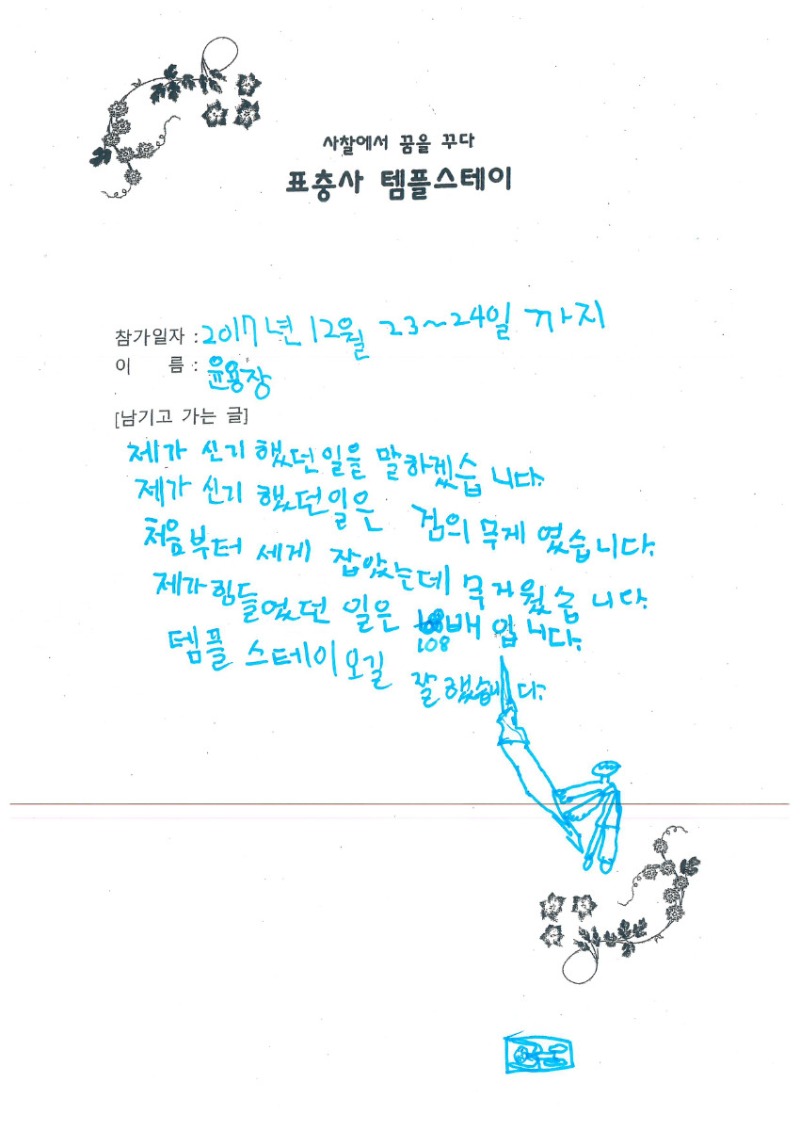 사찰에서 꿈을 꾸다
표충사 템플스테이
참가일자 : 2017년 12월 23~24일 까지
이 름 : 윤용장
[남기고 가는 글]
제가 신기 했던일을 말하겠습 니다.
제가 신기 했던일은 검의 무게 였습니다.
처음부터 세게 잡았는데 무거웠습 니다.
제가힘들었던 일은 108배 입니다.
템플 스테이오길 잘했습니다.